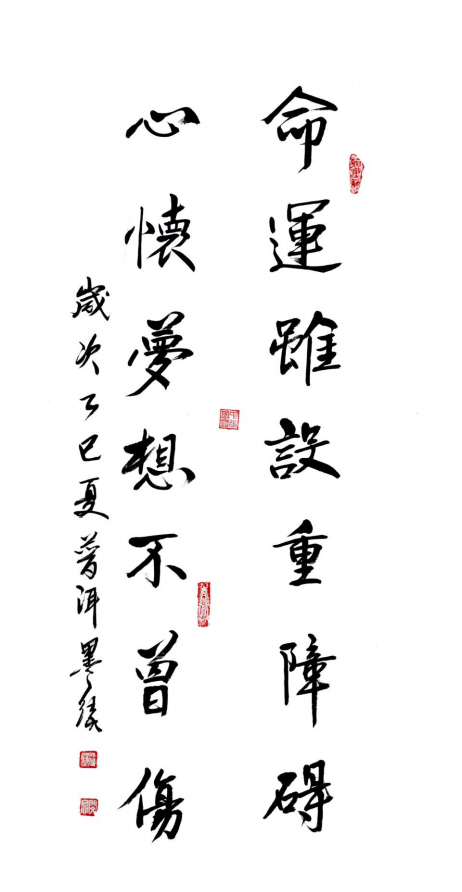 命運雖設重障碍
心懷夢想不曾傷
歲次乙巳夏普洱墨緣